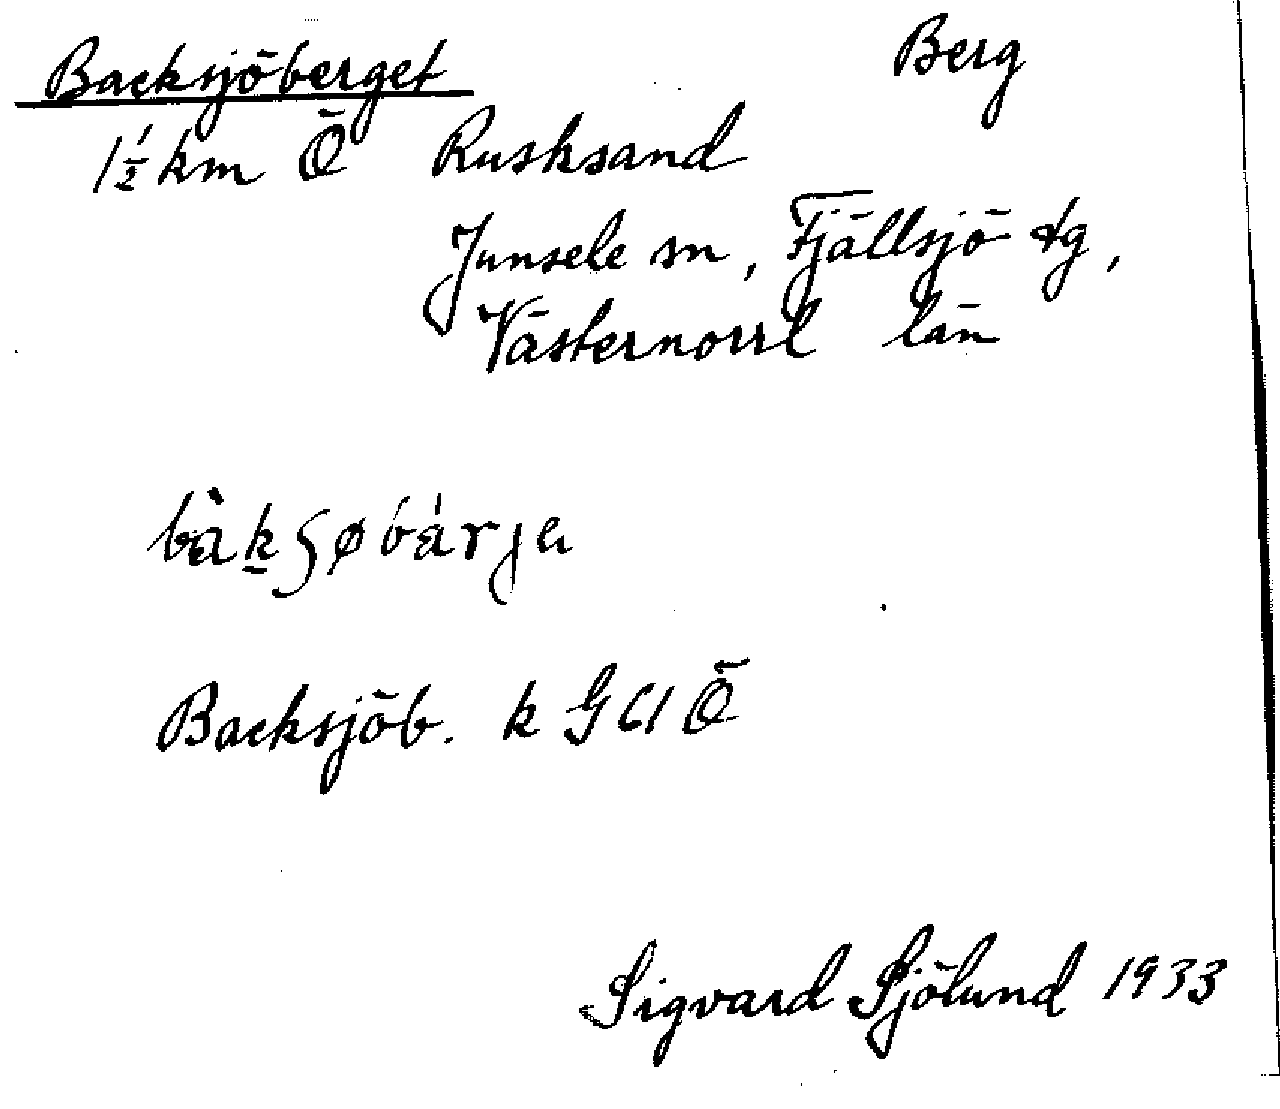 Backsjöberget Berg
1½ km Ö Rusksand
Junsele sn, Fjällsjö tg,
Västernorrl län
Backsjöb. k G 61 Ö
Sigvard Sjölund 1933